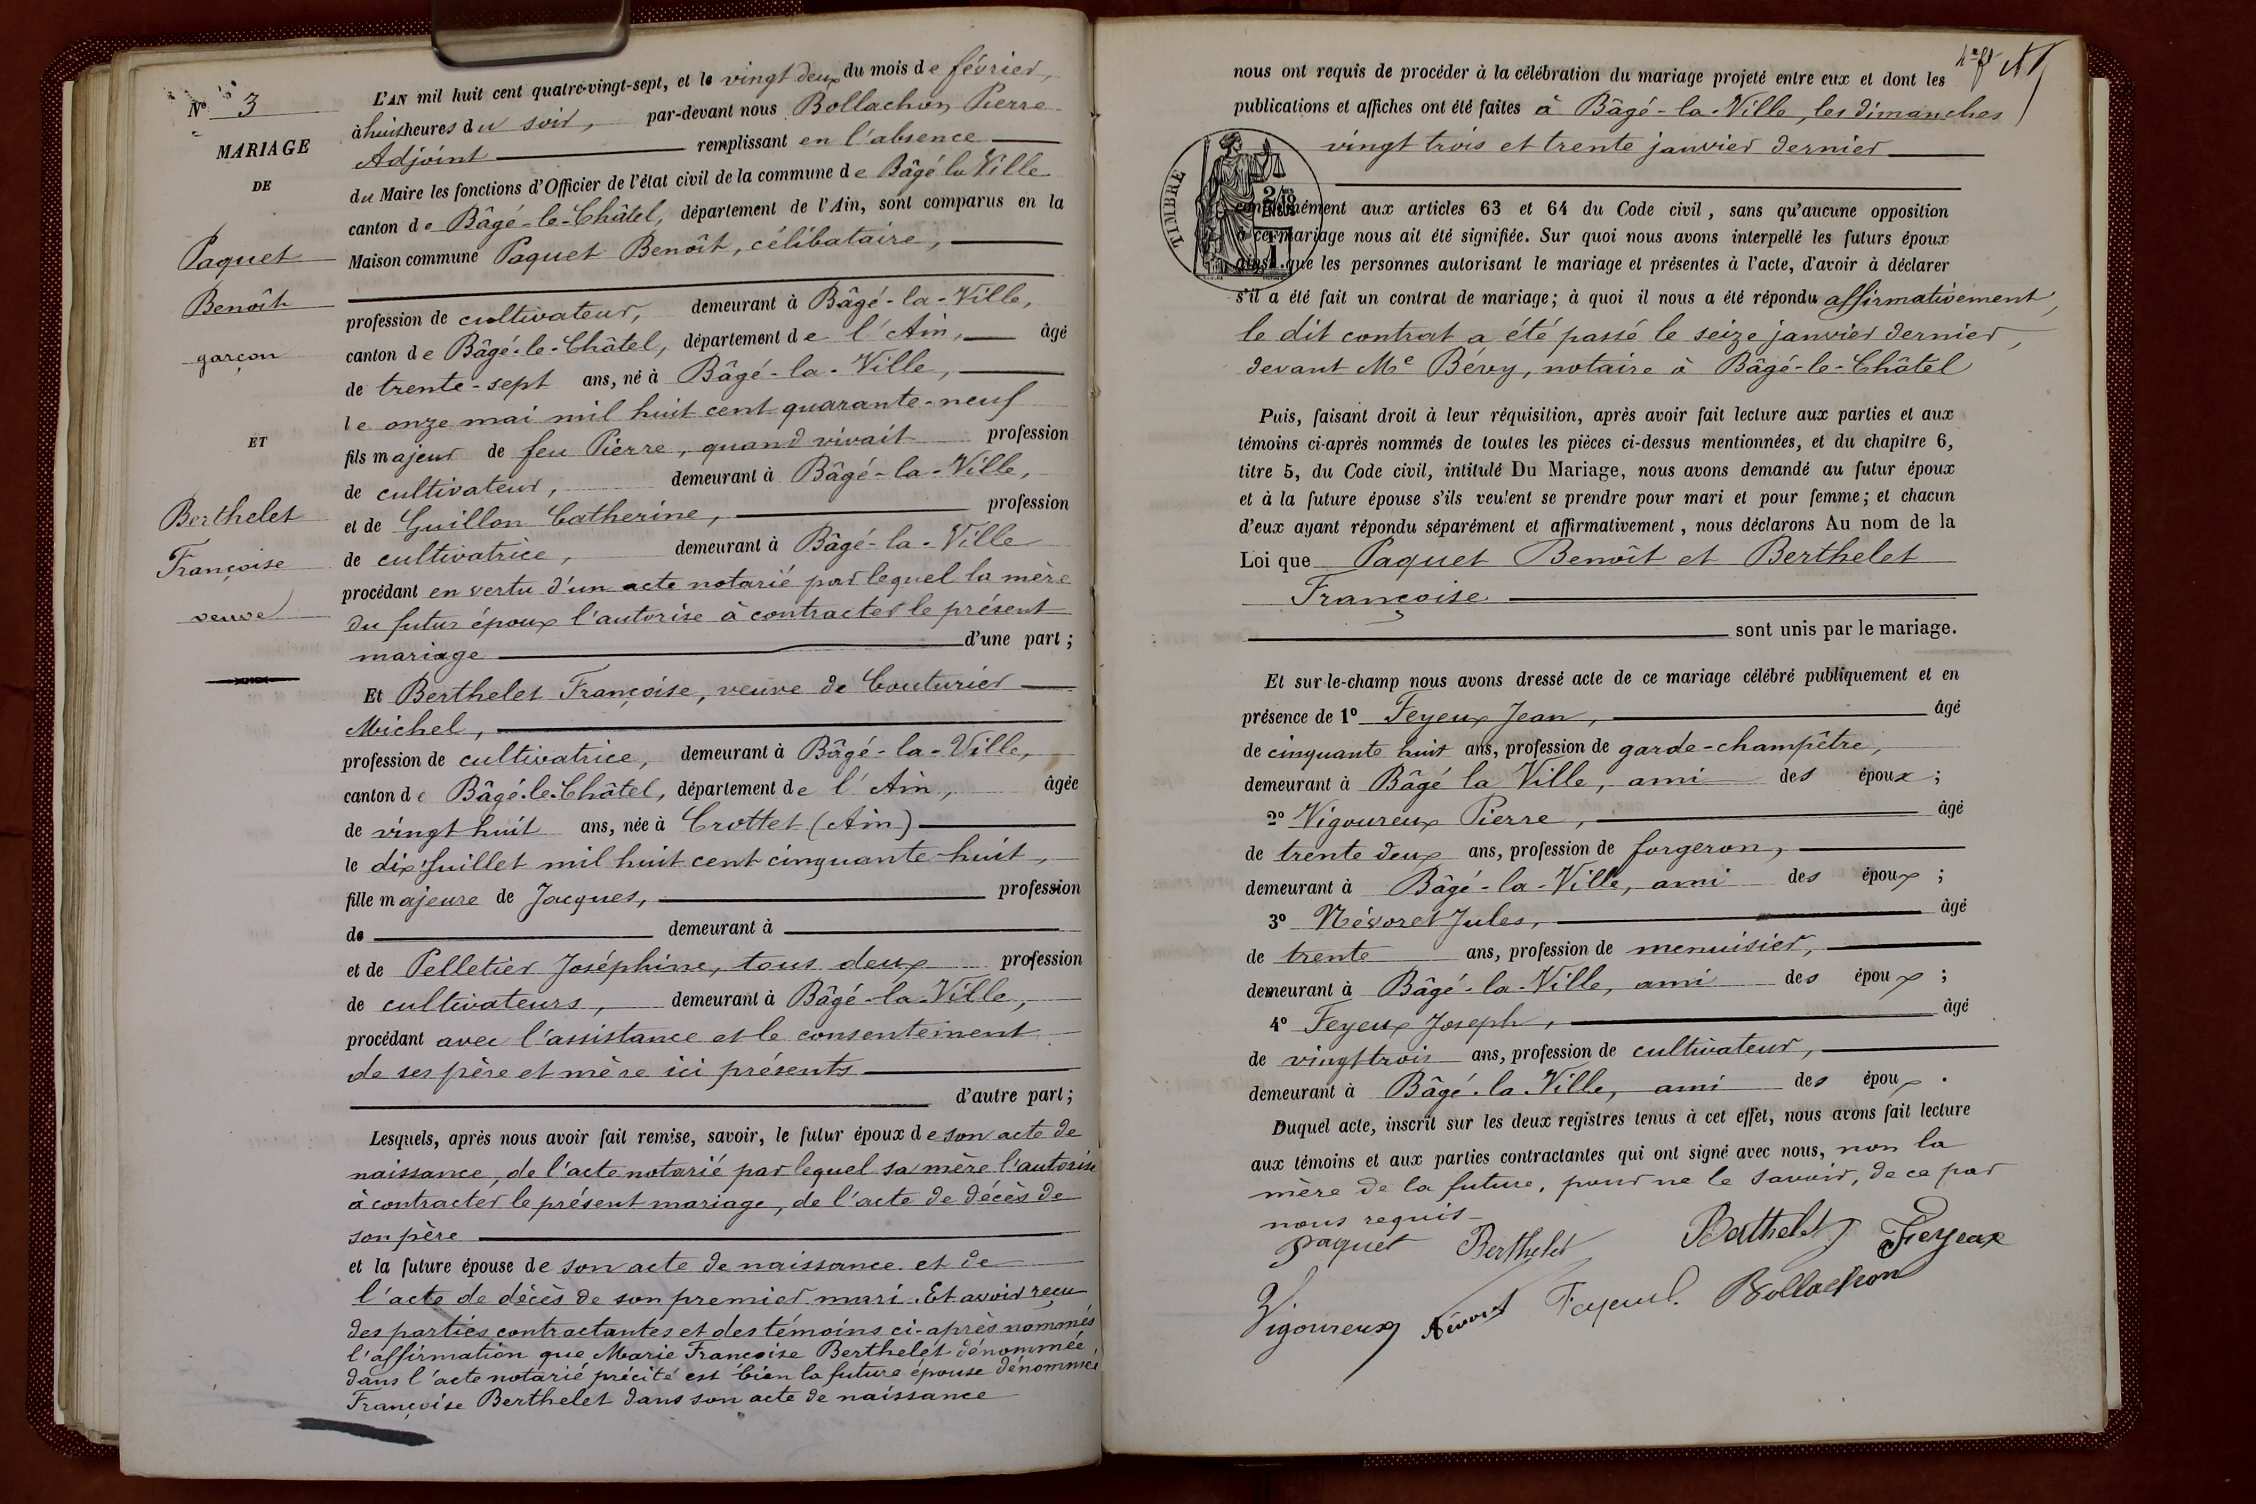 Nº 3
MARIAGE
DE
Paquet
Benoît
garçon
ET
Berthelet
Françoise
veuve
L'AN mil huit cent quatre-vingt-sept, et le vingt deux du mois de février,
à huit heures du soir, par-devant nous Bollachon Pierre
Adjoint remplissant en l'absence
du Maire les fonctions d'Officier de l'état civil de la commune de Bâgé la Ville
canton de Bâgé-le-Châtel, département de l'Ain, sont comparus en la
Maison commune Paquet Benoît, célibataire,
profession de cultivateur, demeurant à Bâgé-la-Ville,
canton de Bâgé-le-Châtel, département de l'Ain, âgé
de trente-sept ans, né à Bâgé-la-Ville,
le onze mai mil huit cent quarante-neuf
fils majeur de feu Pierre, quand vivait profession
de cultivateur, demeurant à Bâgé-la-Ville,
et de Guillon Catherine, profession
de cultivatrice, demeurant à Bâgé-la-Ville
procédant en vertu d'un acte notarié par lequel la mère
du futur époux l'autorise à contracter le présent
mariage d'une part;
Et Berthelet Françoise, veuve de Couturier
Michel,
profession de cultivatrice, demeurant à Bâgé-la-Ville,
canton de Bâgé-le-Châtel, département de l'Ain, âgée
de vingt huit ans, née à Crottet (Ain)
le dix Juillet mil huit cent cinquante-huit,
fille majeure de Jacques, profession
de demeurant à
et de Pelletier Joséphine, tous deux profession
de cultivateurs, demeurant à Bâgé-la-Ville,
procédant avec l'assistance et le consentement
de ses père et mère ici présents
d'autre part;
Lesquels, après nous avoir fait remise, savoir, le futur époux de son acte de
naissance, de l'acte notarié par lequel sa mère l'autorise
à contracter le présent mariage, de l'acte de décès de
son père
et la future épouse de son acte de naissance et de
l'acte de décès de son premier mari. Et avoir reçu
des parties contractantes et des témoins ci-après nommés
l'affirmation que Marie Françoise Berthelet dénommée
dans l'acte notarié précité est bien la future épouse dénommée
Françoise Berthelet dans son acte de naissance
nous ont requis de procéder à la célébration du mariage projeté entre eux et dont les
publications et affiches ont été faites à Bâgé-la-Ville, les dimanches
vingt trois et trente janvier dernier
TIMBRE
conformément aux articles 63 et 64 du Code civil, sans qu'aucune opposition
à ce mariage nous ait été signifiée. Sur quoi nous avons interpellé les futurs époux
ainsi que les personnes autorisant le mariage et présentes à l'acte, d'avoir à déclarer
s'il a été fait un contrat de mariage; à quoi il nous a été répondu affirmativement,
le dit contrat a été passé le seize janvier dernier,
devant Me Bévy, notaire à Bâgé-le-Châtel
Puis, faisant droit à leur réquisition, après avoir fait lecture aux parties et aux
témoins ci-après nommés de toutes les pièces ci-dessus mentionnées, et du chapitre 6,
titre 5, du Code civil, intitulé Du Mariage, nous avons demandé au futur époux
et à la future épouse s'ils veulent se prendre pour mari et pour femme; et chacun
d'eux ayant répondu séparément et affirmativement, nous déclarons Au nom de la
Loi que Paquet Benoît et Berthelet
Françoise
sont unis par le mariage.
Et sur-le-champ nous avons dressé acte de ce mariage célébré publiquement et en
présence de 1º Feyeux Jean, âgé
de cinquante huit ans, profession de garde-champêtre,
demeurant à Bâgé la Ville, ami des époux;
2º Vigoureux Pierre, âgé
de trente deux ans, profession de forgeron,
demeurant à Bâgé-la-Ville, ami des époux;
3º Névoret Jules, âgé
de trente ans, profession de menuisier,
demeurant à Bâgé-la-Ville, ami des époux;
4º Feyeux Joseph, âgé
de vingt trois ans, profession de cultivateur,
demeurant à Bâgé-la-Ville, ami des époux.
Duquel acte, inscrit sur les deux registres tenus à cet effet, nous avons fait lecture
aux témoins et aux parties contractantes qui ont signé avec nous, non la
mère de la future, pour ne le savoir, de ce par
nous requis
Paquet Berthelet Berthelet Feyeux
Vigoureux Névoret Feyeux Bollachon